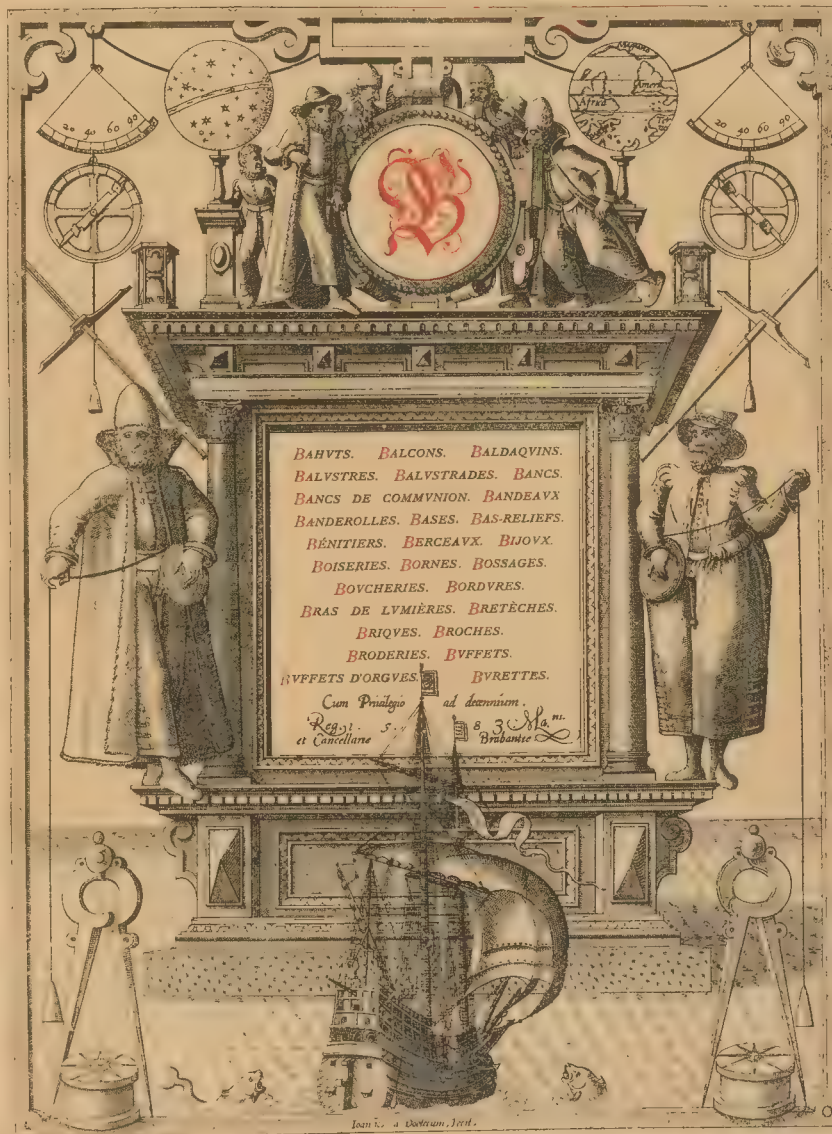 20 40 60 90
Africa
Ameri
20 40 60 90
B
BAHVTS. BALCONS. BALDAQVINS.
BALVSTRES. BALVSTRADES. BANCS.
BANCS DE COMMVNION. BANDEAVX
BANDEROLLES. BASES. BAS-RELIEFS.
BÉNITIERS. BERCEAVX. BIJOVX.
BOISERIES. BORNES. BOSSAGES.
BOVCHERIES. BORDVRES.
BRAS DE LVMIÈRES. BRETÈCHES.
BRIQVES. BROCHES.
BRODERIES. BVFFETS.
BVFFETS D'ORGVES. BVRETTES.
Cum Privilegio ad decennium.
Reg. 1. 5. 8 3.
et Cancellarie Brabantie
a Doetecum, fecit.